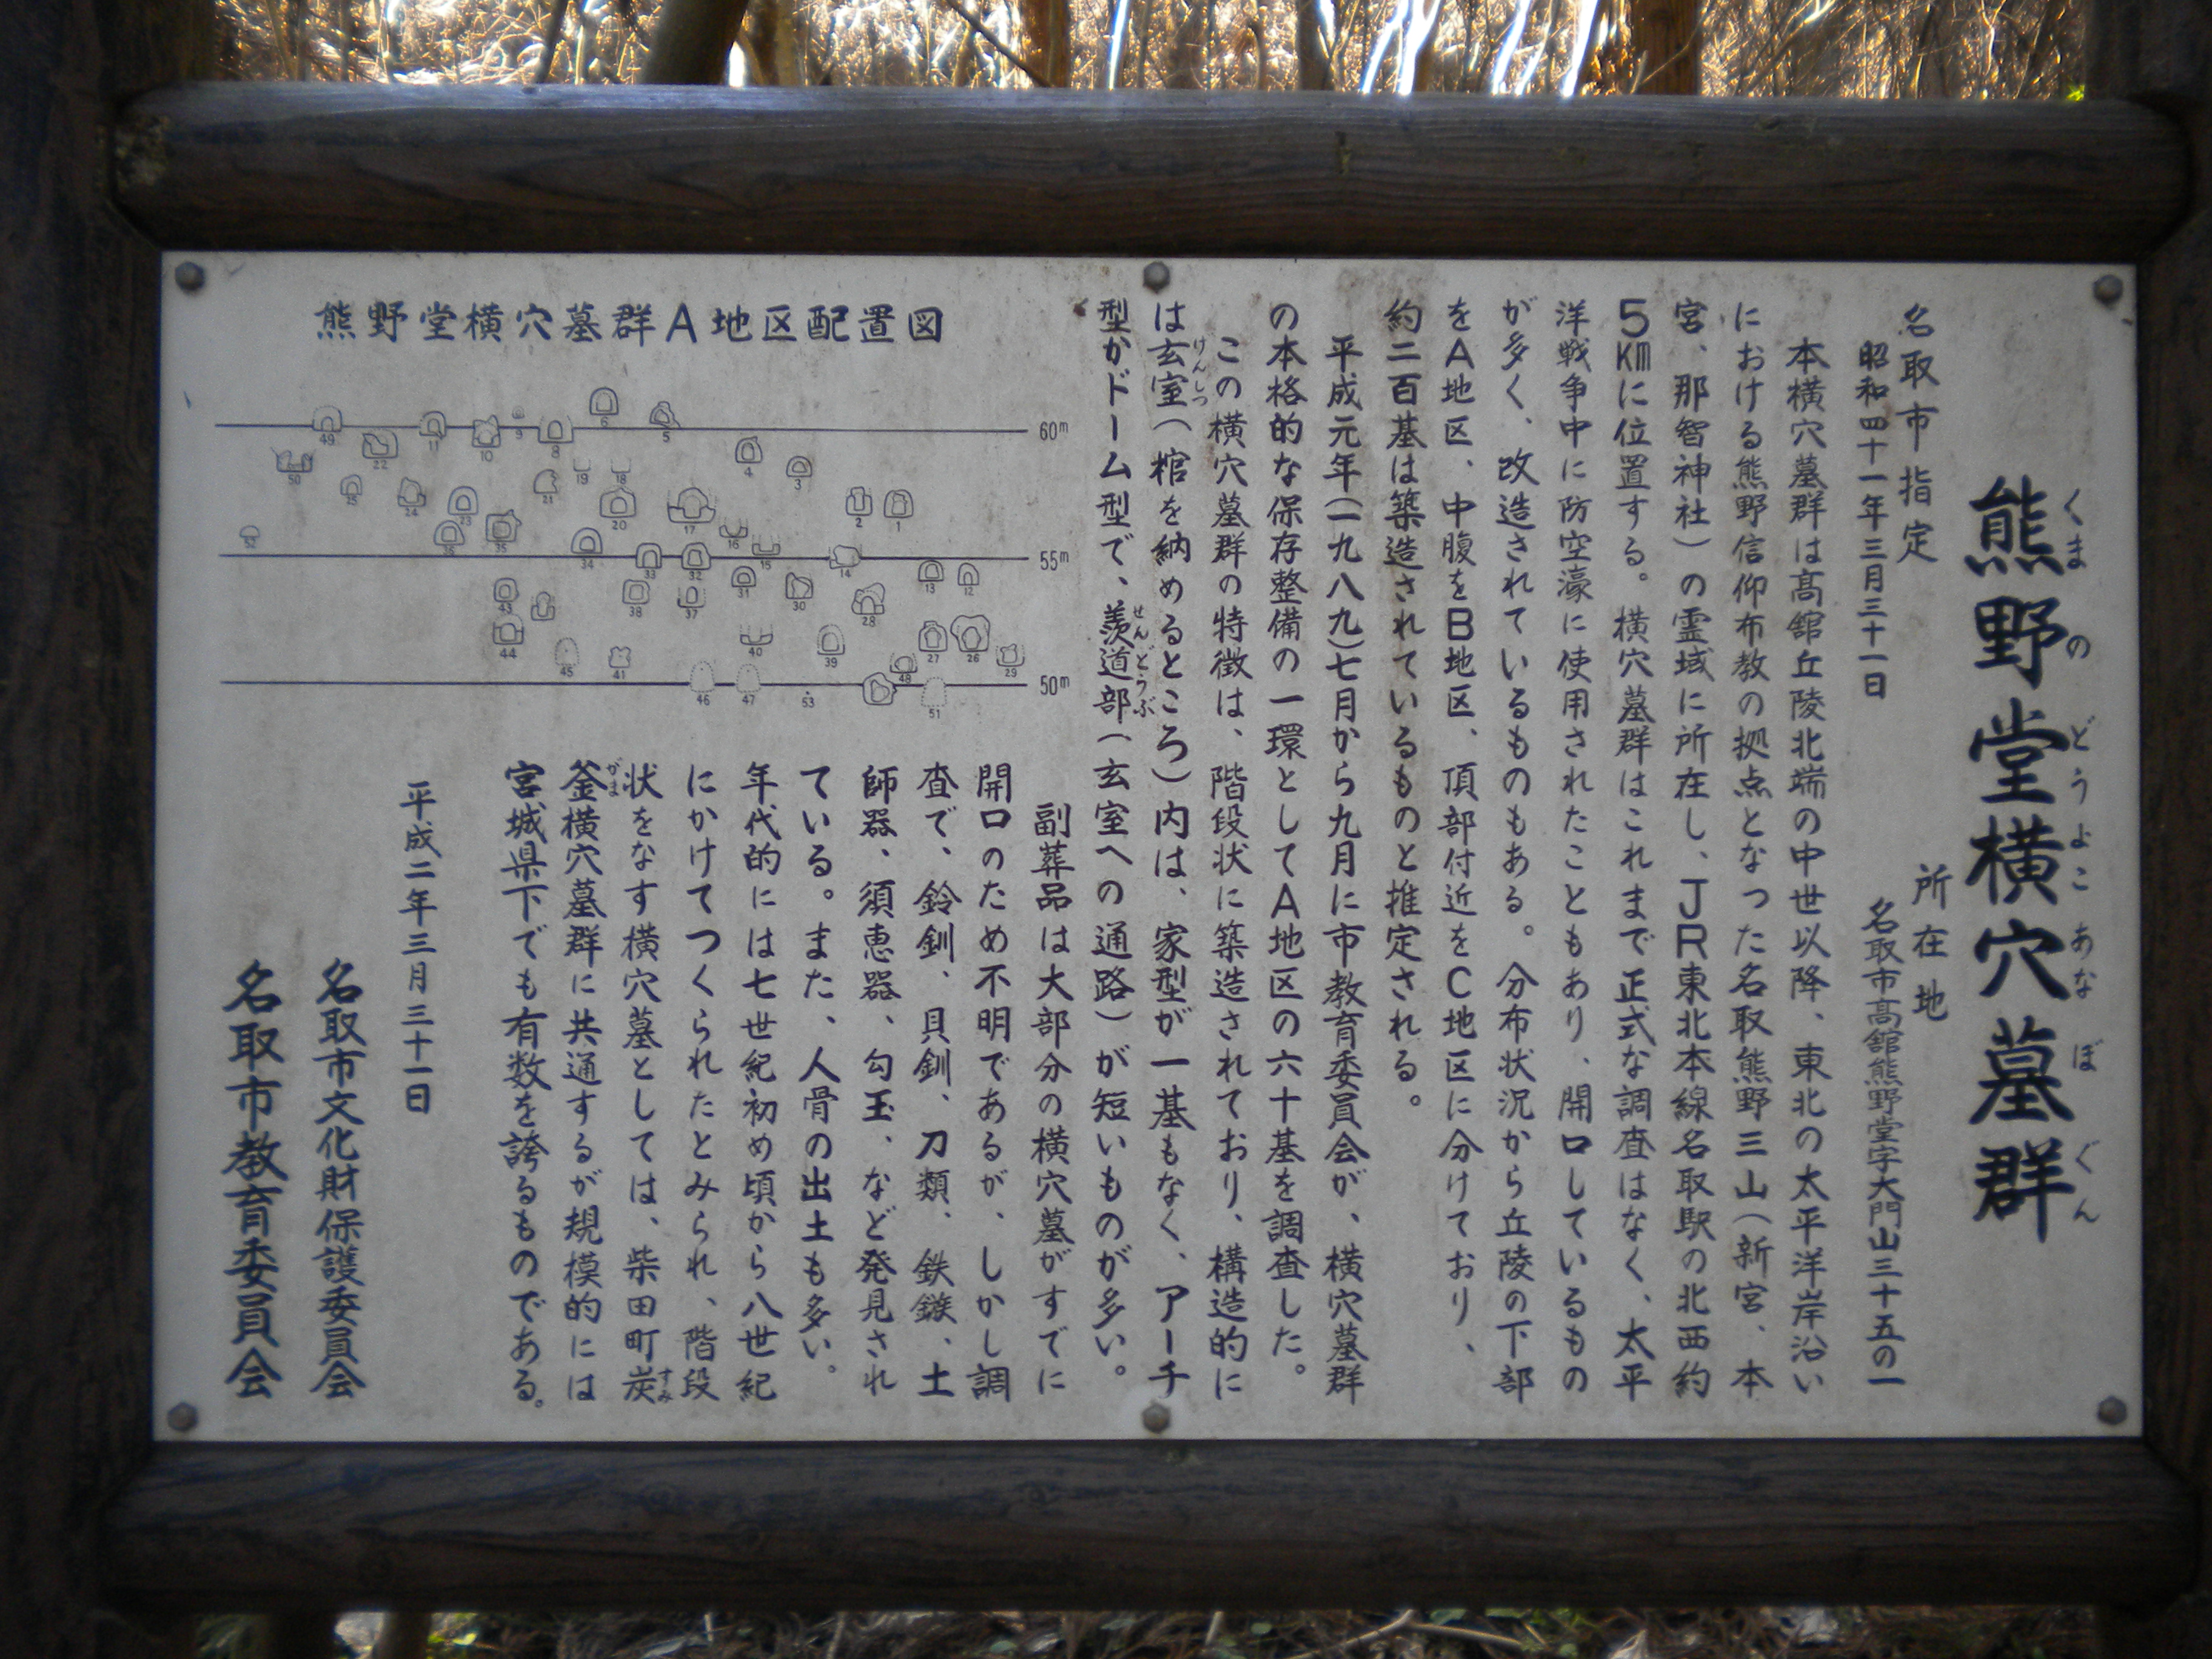 熊野堂横穴墓群
くまのどうよこあなぼぐん
名取市指定
昭和四十一年三月三十一日
所在地
名取市高舘熊野堂字大門山三十五の一
本横穴墓群は高舘丘陵北端の中世以降、東北の太平洋岸沿い
における熊野信仰布教の拠点となった名取熊野三山（新宮、本
宮、那智神社）の霊域に所在し、JR東北本線名取駅の北西約
5㎞に位置する。横穴墓群はこれまで正式な調査はなく、太平
洋戦争中に防空濠に使用されたこともあり、開口しているもの
が多く、改造されているものもある。分布状況から丘陵の下部
をA地区、中腹をB地区、頂部付近をC地区に分けており、
約二百基は築造されているものと推定される。
平成元年（一九八九）七月から九月に市教育委員会が、横穴墓群
の本格的な保存整備の一環としてA地区の六十基を調査した。
この横穴墓群の特徴は、階段状に築造されており、構造的に
は玄室（棺を納めるところ）内は、家型が一基もなく、アーチ
けんしつ
型かドーム型で、羨道部（玄室への通路）が短いものが多い。
せんどうぶ
副葬品は大部分の横穴墓がすでに
開口のため不明であるが、しかし調
査で、鈴釧、貝釧、刀類、鉄鏃、土
師器、須恵器、勾玉、など発見され
ている。また、人骨の出土も多い。
年代的には七世紀初め頃から八世紀
にかけてつくられたとみられ、階段
状をなす横穴墓としては、柴田町炭
すみ
釜横穴墓群に共通するが規模的には
がま
宮城県下でも有数を誇るものである。
平成二年三月三十一日
名取市文化財保護委員会
名取市教育委員会
熊野堂横穴墓群A地区配置図
60m
49 22 11 10 9 8 6 5 4 3
50 25 24 23 21 19 18 20 17 2 1
52 36 35 16
55m
34 33 32 15 14
43 38 37 31 30 28 13 12
44 45 41 40 39 27 26 29
48
50m
46 47 53 51